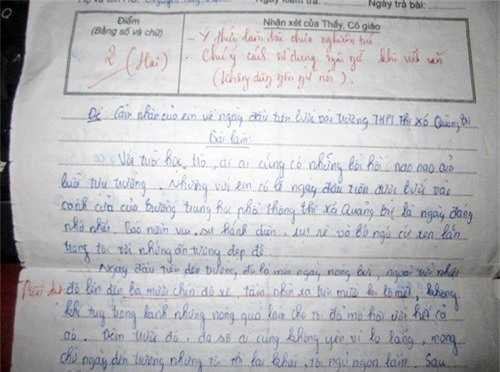 Ngày kiểm tra: Ngày trả bài:
Điểm
(Bằng số và chữ)
Nhận xét của Thầy, Cô giáo
2 (Hai)
- Ý thức làm bài chưa nghiêm túc
- Chú ý cách sử dụng ngôn ngữ khi viết văn
(không dùng ngôn ngữ nói).
Đề: Cảm nhận của em về ngày đầu tiên bước vào trường THPT Thị Xã Quảng Trị
Bài làm:
Với tuổi học trò, ai ai cũng có những bồi hồi nao nao của
buổi tựu trường. Nhưng với em có lẽ ngày đầu tiên được bước vào
cánh cửa của trường trung học phổ thông thị xã Quảng Trị là ngày đáng
nhớ nhất. Bao niềm vui, sự hãnh diện, và bỡ ngỡ cứ xen lẫn
trong tôi với những ấn tượng đẹp đẽ.
Ngày đầu tiên đến trường, đó là một ngày nóng bức, người với nhiệt
độ lên đến ba mươi chín độ xê, tầm nhìn xa trên mười ki lô mét, không
khí tuy trong lành nhưng nóng quá làm cho tôi đổ mồ hôi ướt hết cả
áo. Đêm trước đó, đa số ai cũng không yên vì lo lắng, mong
chờ ngày đến trường nhưng tôi thì lại khác, tôi ngủ ngon lắm. Sau